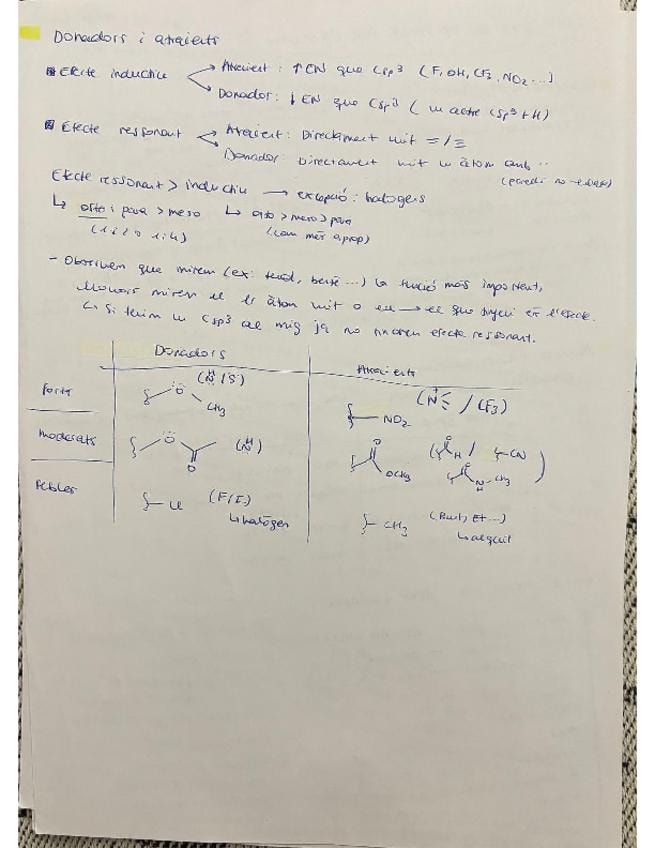 Donadors i atraients
Efecte inductiu
Atraient: ↑EN que Csp³ (F, OH, CF₃, NO₂...)
Donador: ↓EN que Csp³ (un altre Csp³ + H)
Efecte ressonant
Atraient: Directament unit =/≡
Donador: Directament unit un àtom amb ··
(parell no
Efecte ressonant > inductiu → excepció: halogens
↳ orto i para > meso ↳ orto > meso > para
(1:2 o 1:4) (com més aprop)
- que mirem (ex: benzè...) la funció més important,
Llavors mirem el 1r àtom unit o → el que tingui és l'efecte.
↳ Si tenim un Csp³ al mig ja no tindrem efecte ressonant.
Donadors Atraients
forts Ö CH₃ (N̈H / S̈) NO₂ (N⁺ / CF₃)
moderats Ö O (N̈H) O OCH₃ (O H / CN
O N H CH₃)
Febles Cl (F/I..) CH₃ (But, Et...)
↳ halògen ↳ alquil